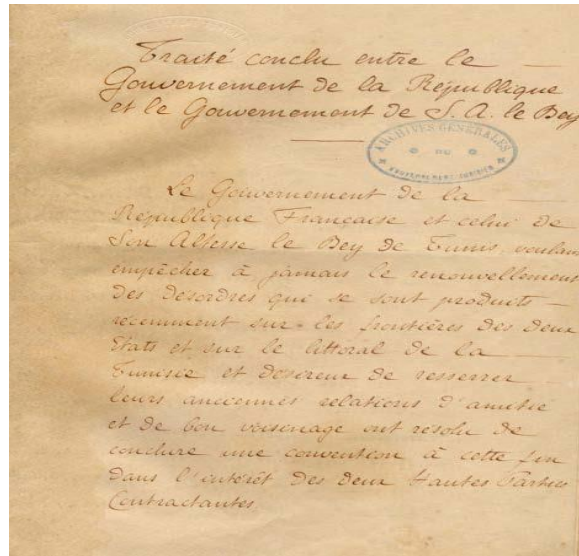 Traité conclu entre le —
Gouvernement de la République
et le Gouvernement de S. A. le Bey
ARCHIVES GÉNÉRALES
DU
GOUVERNEMENT TUNISIEN
Le Gouvernement de la —
République Française et celui de
Son Altesse le Bey de Tunis, voulant
empêcher à jamais le renouvellement
des désordres qui se sont produits —
récemment sur les frontières des deux
États et sur le littoral de la —
Tunisie et désireux de resserrer —
leurs anciennes relations d'amitié
et de bon voisinage ont résolu de
conclure une convention à cette fin
dans l'intérêt des deux Hautes Parties
Contractantes